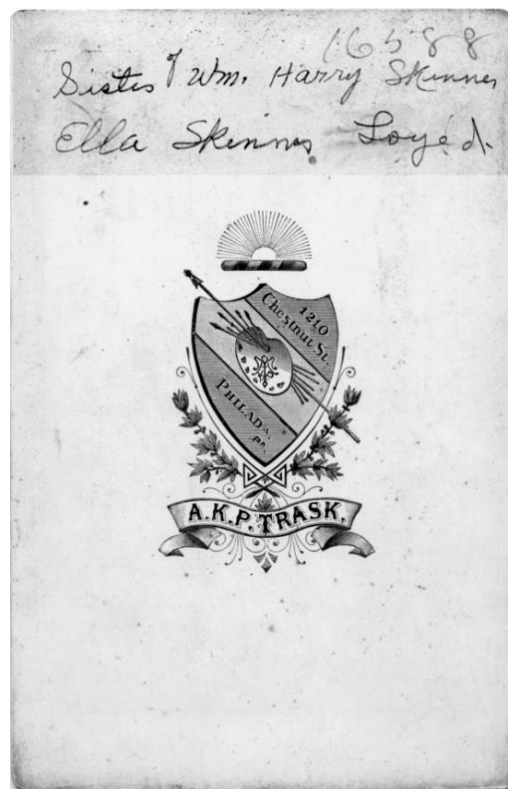 16588
Sister of Wm. Harry Skinner
Ella Skinner Loyed.
1210
Chestnut St.
PHILADA.
PA.
A.K.P. TRASK.